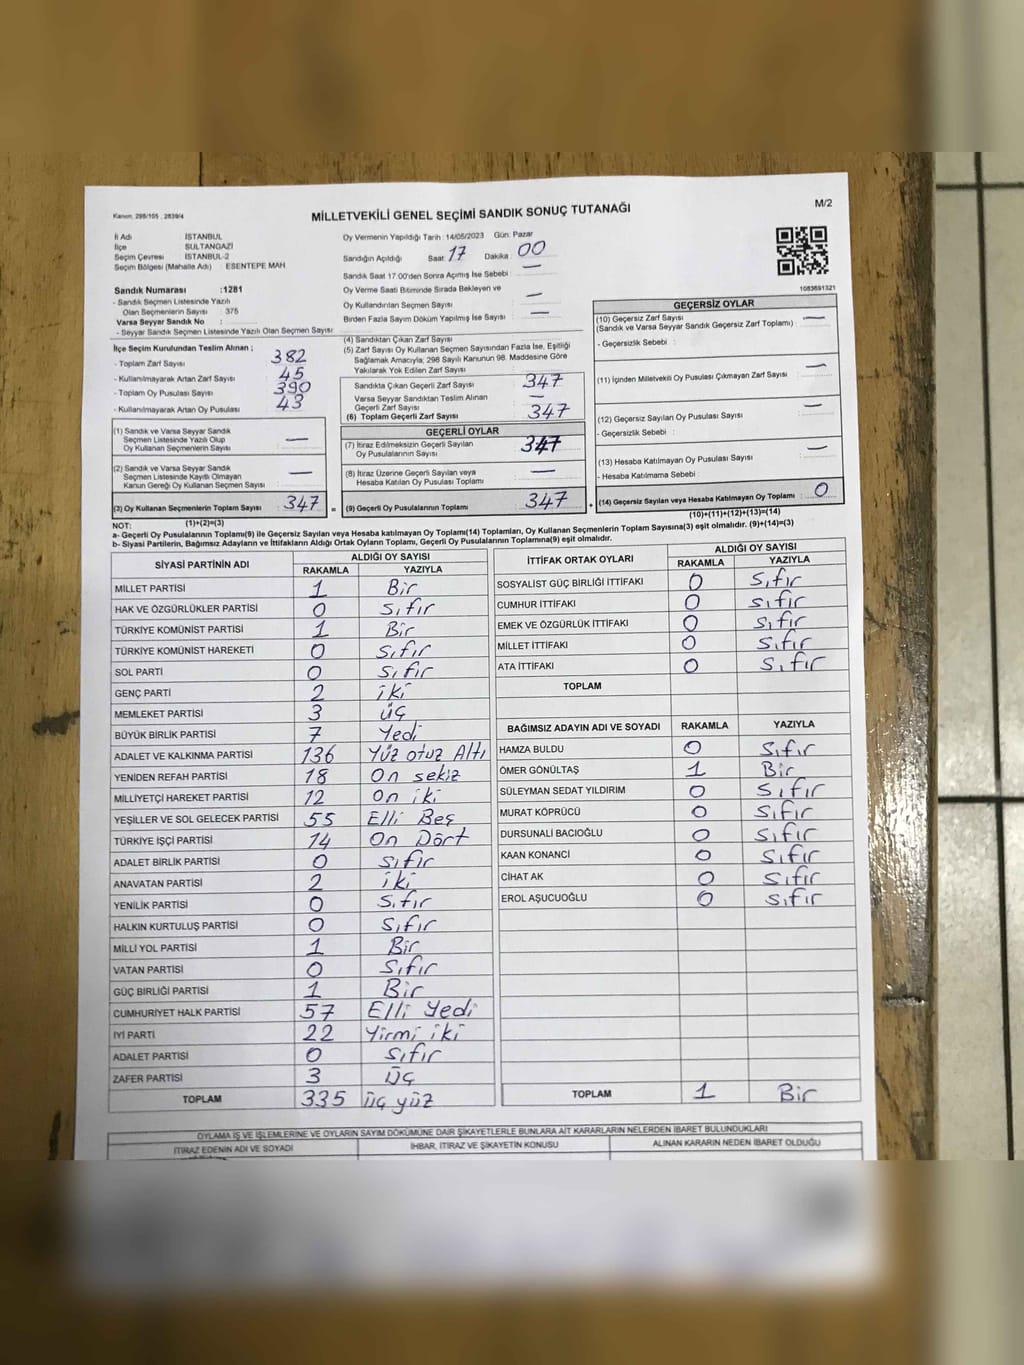 Kanun: 298/105 , 2839/4
MİLLETVEKİLİ GENEL SEÇİMİ SANDIK SONUÇ TUTANAĞI
M/2
İl Adı : İSTANBUL
İlçe : SULTANGAZİ
Seçim Çevresi : İSTANBUL-2
Seçim Bölgesi (Mahalle Adı) : ESENTEPE MAH
Sandık Numarası :1281
- Sandık Seçmen Listesinde Yazılı
Olan Seçmenlerin Sayısı : 375
Varsa Seyyar Sandık No :
- Seyyar Sandık Seçmen Listesinde Yazılı Olan Seçmen Sayısı :
Oy Vermenin Yapıldığı Tarih :14/05/2023 Gün: Pazar
Sandığın Açıldığı Saat: 17 Dakika: 00
Sandık Saat 17:00'den Sonra Açılmış İse Sebebi : —
Oy Verme Saati Bitiminde Sırada Bekleyen ve
Oy Kullandırılan Seçmen Sayısı : —
Birden Fazla Sayım Döküm Yapılmış İse Sayısı : —
1083691321
İlçe Seçim Kurulundan Teslim Alınan ;
- Toplam Zarf Sayısı : 382
- Kullanılmayarak Artan Zarf Sayısı : 45
- Toplam Oy Pusulası Sayısı : 390
- Kullanılmayarak Artan Oy Pusulası : 43
(1) Sandık ve Varsa Seyyar Sandık
Seçmen Listesinde Yazılı Olup
Oy Kullanan Seçmen Sayısı : —
(2) Sandık ve Varsa Seyyar Sandık
Seçmen Listesinde Kayıtlı Olmayan
Kanun Gereği Oy Kullanan Seçmen Sayısı : —
(3) Oy Kullanan Seçmenlerin Toplam Sayısı : 347
(1)+(2)=(3)
(4) Sandıktan Çıkan Zarf Sayısı :
(5) Zarf Sayısı Oy Kullanan Seçmen Sayısından Fazla İse, Eşitliği
Sağlamak Amacıyla; 298 Sayılı Kanunun 98. Maddesine Göre
Yakılarak Yok Edilen Zarf Sayısı :
Sandıkta Çıkan Geçerli Zarf Sayısı : 347
Varsa Seyyar Sandıktan Teslim Alınan
Geçerli Zarf Sayısı : —
(6) Toplam Geçerli Zarf Sayısı : 347
GEÇERLİ OYLAR
(7) İtiraz Edilmeksizin Geçerli Sayılan
Oy Pusulalarının Sayısı : 347
(8) İtiraz Üzerine Geçerli Sayılan veya
Hesaba Katılan Oy Pusulası Toplamı : —
= (9) Geçerli Oy Pusulalarının Toplamı : 347
GEÇERSİZ OYLAR
(10) Geçersiz Zarf Sayısı : —
(Sandık ve Varsa Seyyar Sandık Geçersiz Zarf Toplamı)
- Geçersizlik Sebebi :
(11) İçinden Milletvekili Oy Pusulası Çıkmayan Zarf Sayısı : —
(12) Geçersiz Sayılan Oy Pusulası Sayısı : —
- Geçersizlik Sebebi :
(13) Hesaba Katılmayan Oy Pusulası Sayısı : —
- Hesaba Katılmama Sebebi :
+ (14) Geçersiz Sayılan veya Hesaba Katılmayan Oy Toplamı : 0
(10)+(11)+(12)+(13)=(14)
NOT:
a- Geçerli Oy Pusulalarının Toplamı(9) ile Geçersiz Sayılan veya Hesaba katılmayan Oy Toplamı(14) Toplamları, Oy Kullanan Seçmenlerin Toplam Sayısına(3) eşit olmalıdır. (9)+(14)=(3)
b- Siyasi Partilerin, Bağımsız Adayların ve İttifakların Aldığı Ortak Oyların Toplamı, Geçerli Oy Pusulalarının Toplamına(9) eşit olmalıdır.
SİYASİ PARTİNİN ADI ALDIĞI OY SAYISI
RAKAMLA YAZIYLA
MİLLET PARTİSİ 1 Bir
HAK VE ÖZGÜRLÜKLER PARTİSİ 0 Sıfır
TÜRKİYE KOMÜNİST PARTİSİ 1 Bir
TÜRKİYE KOMÜNİST HAREKETİ 0 Sıfır
SOL PARTİ 0 Sıfır
GENÇ PARTİ 2 iki
MEMLEKET PARTİSİ 3 üç
BÜYÜK BİRLİK PARTİSİ 7 Yedi
ADALET VE KALKINMA PARTİSİ 136 Yüz otuz Altı
YENİDEN REFAH PARTİSİ 18 On sekiz
MİLLİYETÇİ HAREKET PARTİSİ 12 On iki
YEŞİLLER VE SOL GELECEK PARTİSİ 55 Elli Beş
TÜRKİYE İŞÇİ PARTİSİ 14 On Dört
ADALET BİRLİK PARTİSİ 0 Sıfır
ANAVATAN PARTİSİ 2 iki
YENİLİK PARTİSİ 0 Sıfır
HALKIN KURTULUŞ PARTİSİ 0 Sıfır
MİLLİ YOL PARTİSİ 1 Bir
VATAN PARTİSİ 0 Sıfır
GÜÇ BİRLİĞİ PARTİSİ 1 Bir
CUMHURİYET HALK PARTİSİ 57 Elli Yedi
İYİ PARTİ 22 Yirmi iki
ADALET PARTİSİ 0 Sıfır
ZAFER PARTİSİ 3 Üç
TOPLAM 335 üç yüz
İTTİFAK ORTAK OYLARI ALDIĞI OY SAYISI
RAKAMLA YAZIYLA
SOSYALİST GÜÇ BİRLİĞİ İTTİFAKI 0 Sıfır
CUMHUR İTTİFAKI 0 Sıfır
EMEK VE ÖZGÜRLÜK İTTİFAKI 0 Sıfır
MİLLET İTTİFAKI 0 Sıfır
ATA İTTİFAKI 0 Sıfır
TOPLAM
BAĞIMSIZ ADAYIN ADI VE SOYADI RAKAMLA YAZIYLA
HAMZA BULDU 0 Sıfır
ÖMER GÖNÜLTAŞ 1 Bir
SÜLEYMAN SEDAT YILDIRIM 0 Sıfır
MURAT KÖPRÜCÜ 0 Sıfır
DURSUNALİ BACIOĞLU 0 Sıfır
KAAN KONANCİ 0 Sıfır
CİHAT AK 0 Sıfır
EROL AŞUCUOĞLU 0 Sıfır
TOPLAM 1 Bir
OYLAMA İŞ VE İŞLEMLERİNE VE OYLARIN SAYIM DÖKÜMÜNE DAİR ŞİKAYETLERLE BUNLARA AİT KARARLARIN NELERDEN İBARET BULUNDUKLARI
İTİRAZ EDENİN ADI VE SOYADI İHBAR, İTİRAZ VE ŞİKAYETİN KONUSU ALINAN KARARIN NEDEN İBARET OLDUĞU